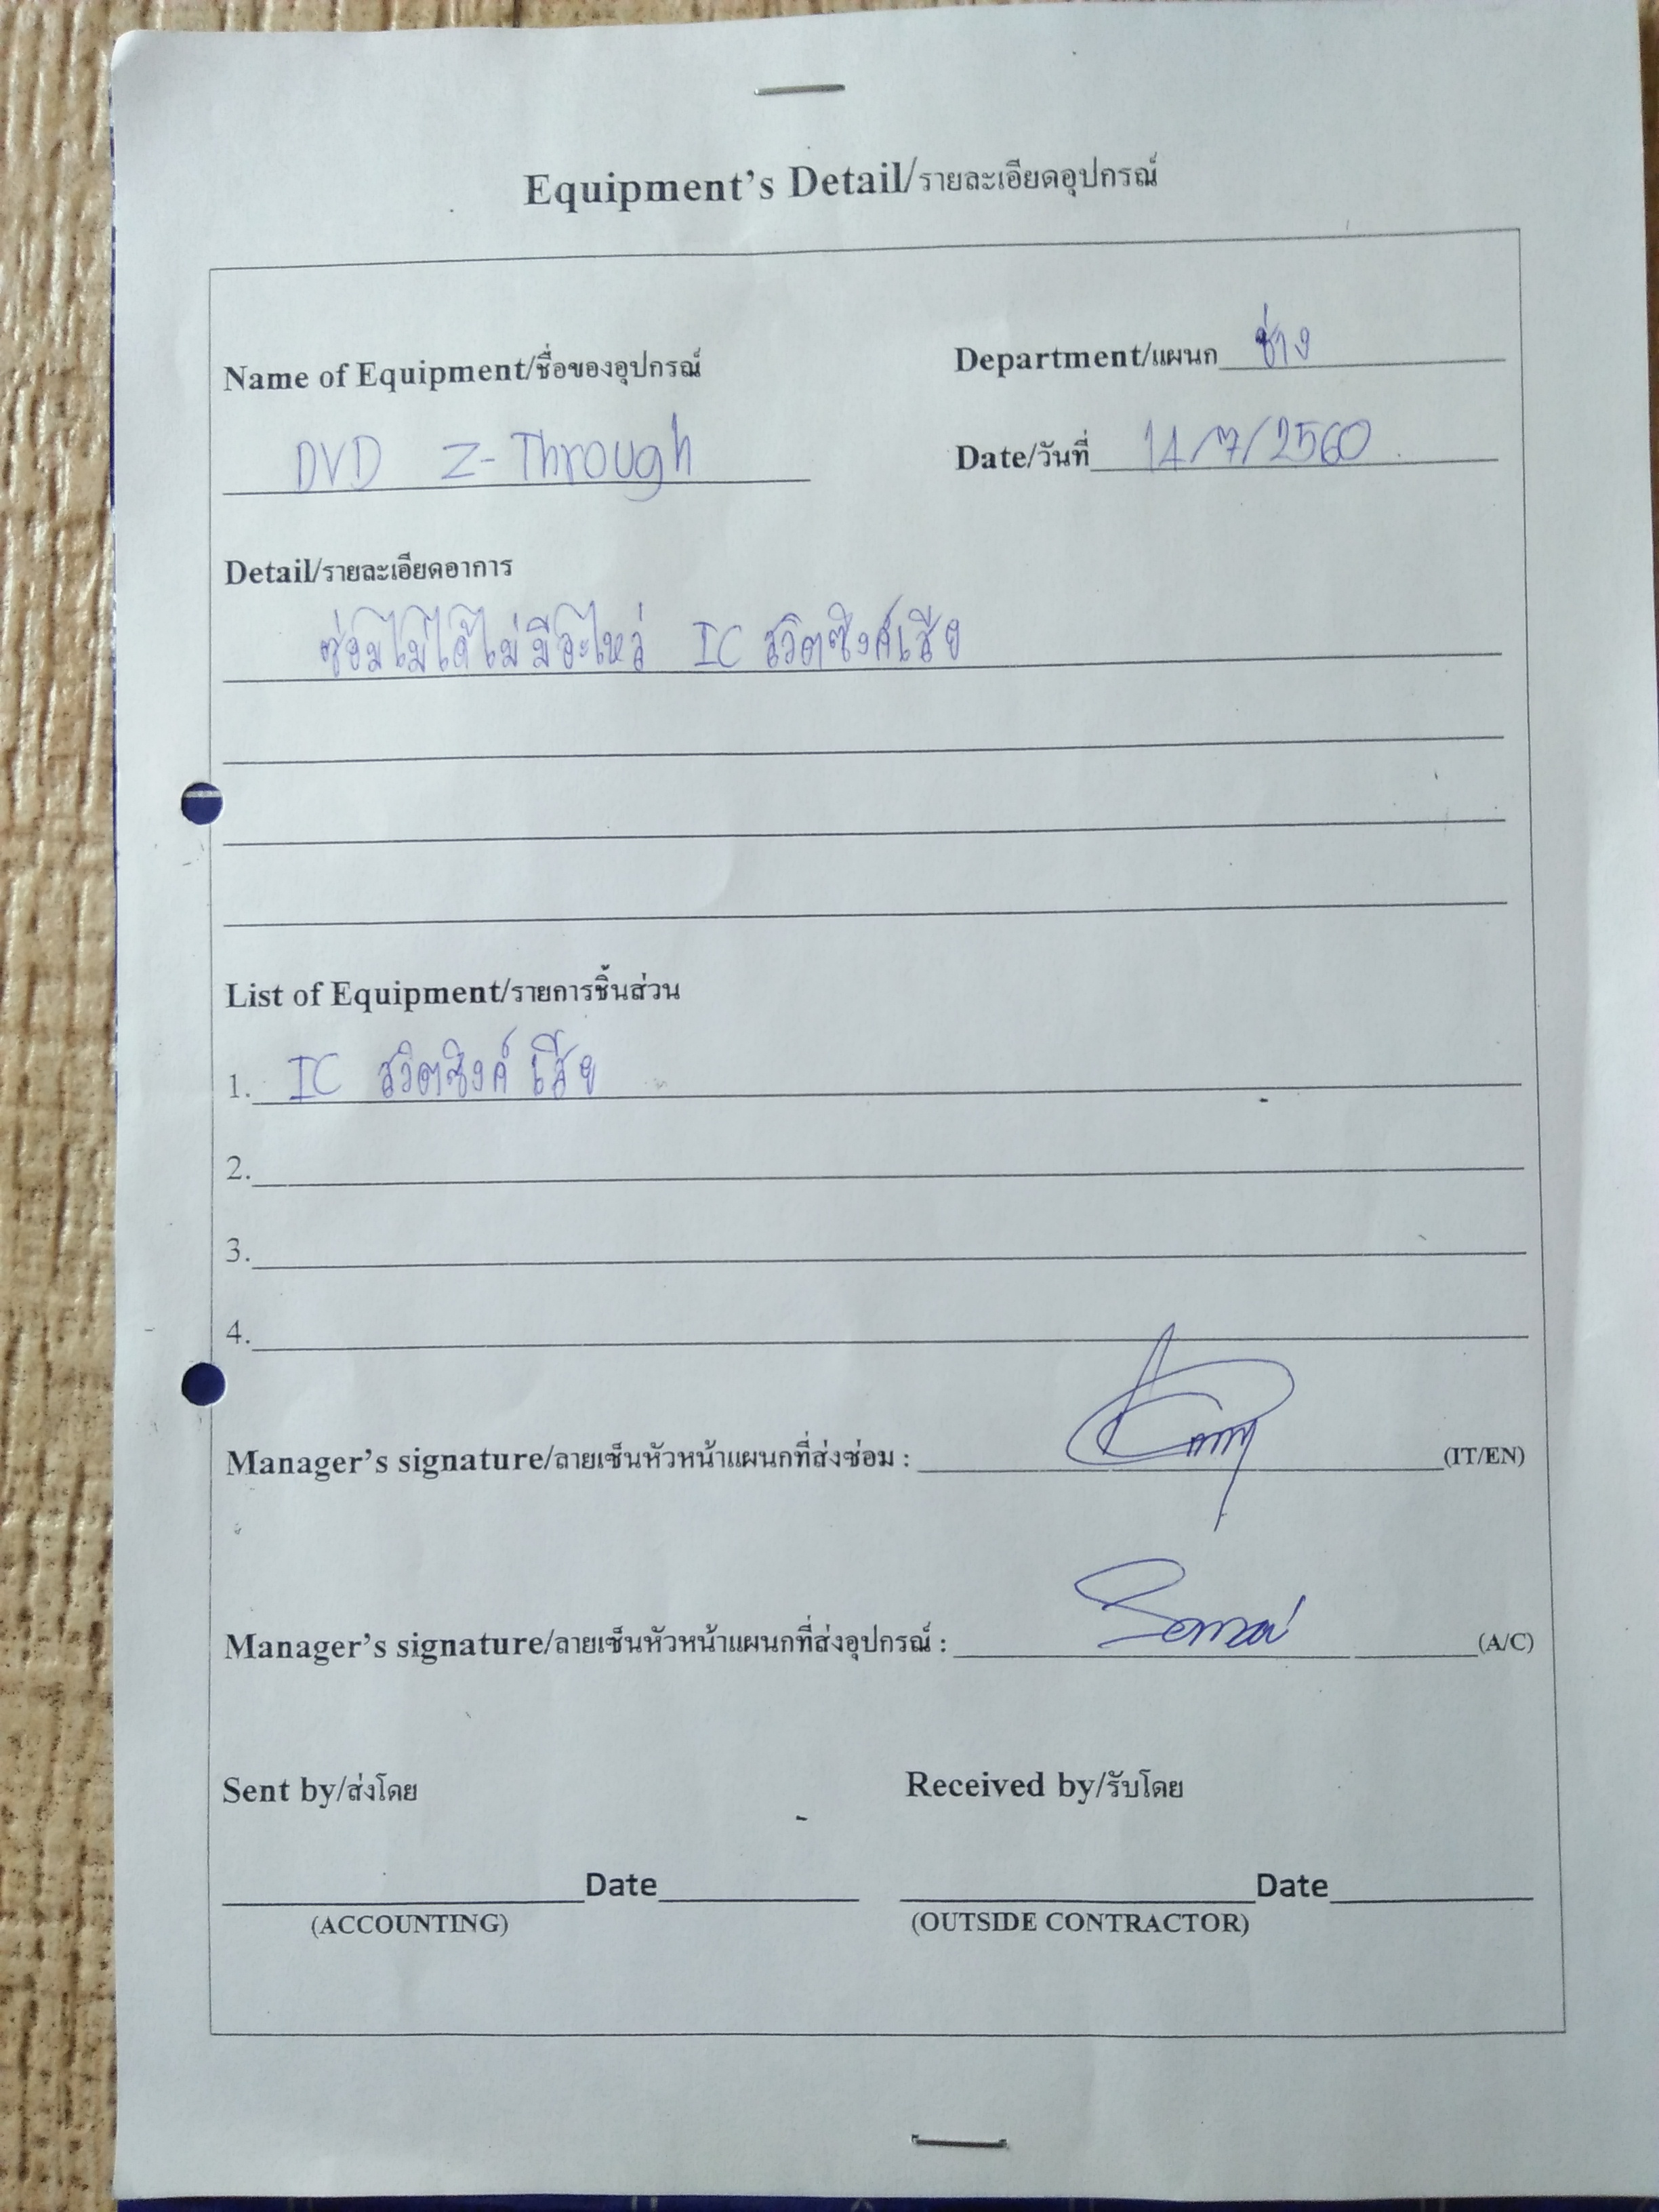 Equipment's Detail/รายละเอียดอุปกรณ์
Name of Equipment/ชื่อของอุปกรณ์ Department/แผนก ช่าง
DVD Z-Through Date/วันที่ 14/7/2560
Detail/รายละเอียดอาการ
ซ่อมไม่ได้ไม่มีอะไหล่ IC สวิตซิงค์เสีย
List of Equipment/รายการชิ้นส่วน
1. IC สวิตซิงค์ เสีย
2.
3.
4.
Manager's signature/ลายเซ็นหัวหน้าแผนกที่ส่งซ่อม : (IT/EN)
Manager's signature/ลายเซ็นหัวหน้าแผนกที่ส่งอุปกรณ์ : (A/C)
Sent by/ส่งโดย Received by/รับโดย
Date Date
(ACCOUNTING) (OUTSIDE CONTRACTOR)